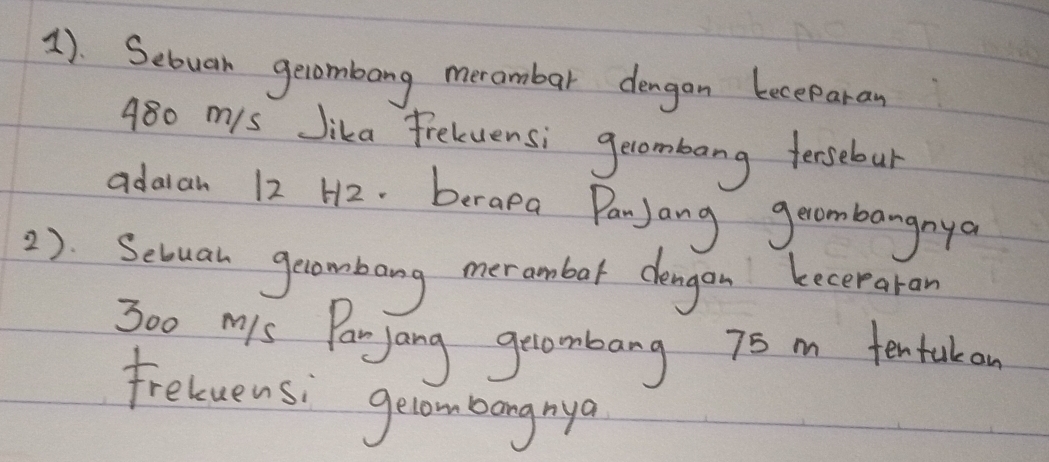 1). Sebuah gelombang merambat dengan kecepatan
480 m/s Jika frekuensi gelombang tersebut
adalah 12 Hz. berapa Panjang gelombangnya
2). Sebuah gelombang merambat dengan kecepatan
300 m/s Panjang gelombang 75 m tentukan
frekuensi gelombangnya